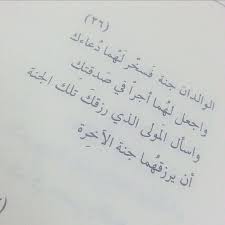 (٣٦)
الوالدان جنة فَسخّر لَهُما دُعاءك
واجعل لهُما أجراً في صَدقتِك
واسأل المَولى الذي رزقكَ تلك الجنة
أن يرزقهُما جنة الآخِرة